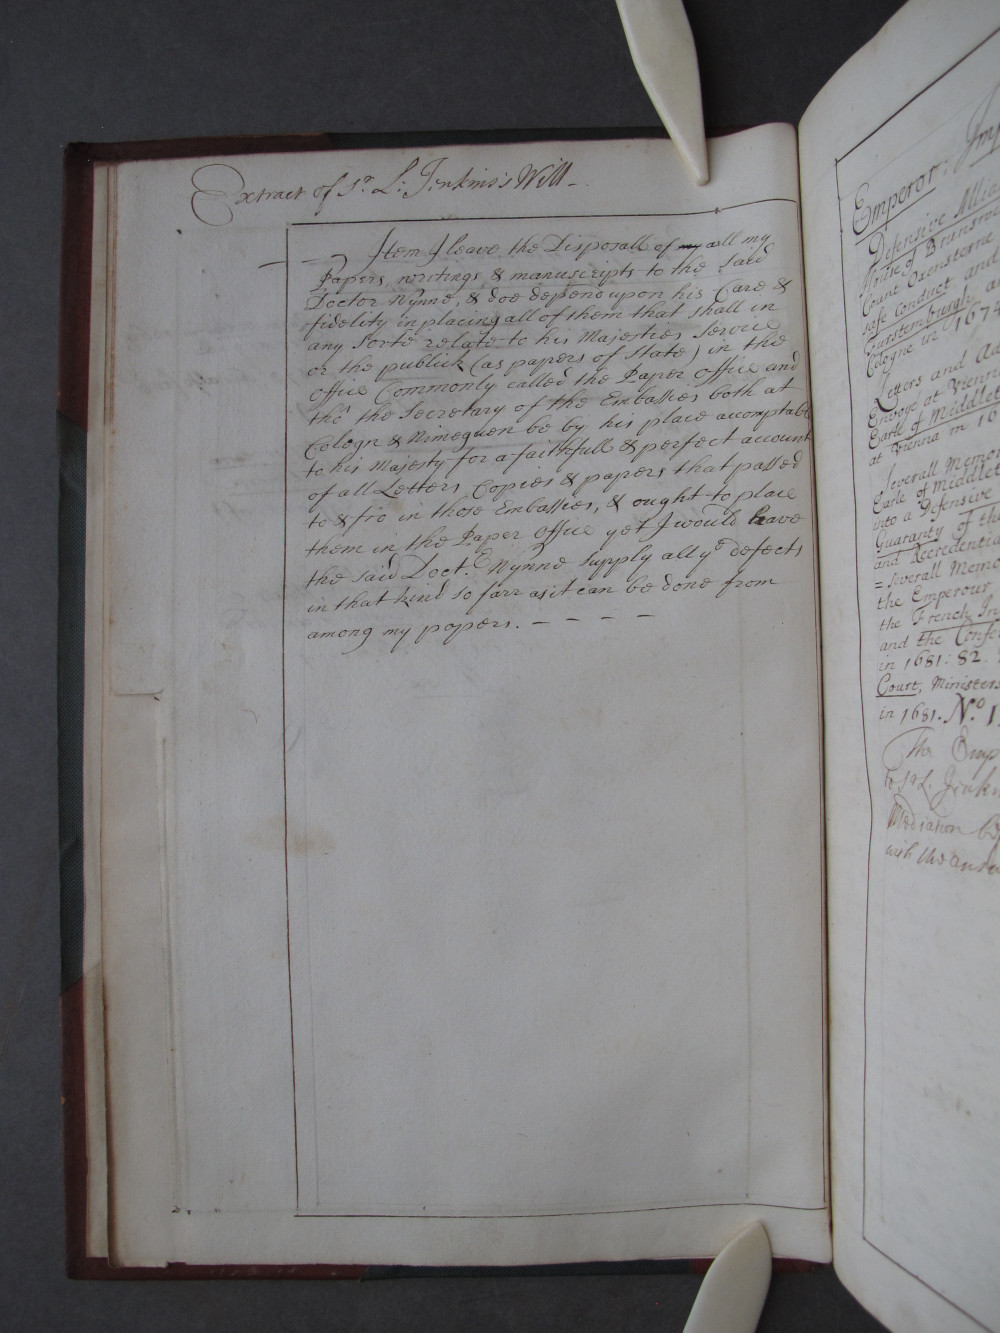 Extract of Sr. L: Jenkins's Will
Item I leave the Disposall of my all my
Papers, writings & manuscripts to the said
Doctor Wynne, & doe depend upon his Care &
fidelity in placing all of them that shall in
any Sorte relate to his Majesties Service
or the publick (as papers of State) in the
Office Commonly called the Paper Office and
tho' the Secretary of the Embassies both at
Cologn & Nimeguen be by his place accomptable
to his Majesty for a faithfull & perfect account
of all Letters, Copies & papers that passed
to & fro in those Embassies, & ought to place
them in the Paper Office yet I would have
the said Doct. Wynne supply all ye defects
in that kind so farr as it can be done from
among my papers. - - - -
Emperor: Imp
Defensive Allia
House of Brunsw
Count Oxensterne
safe conduct and
Furstemburgh, a
Cologne in 1674
Letters and Ad
Envoye at Vienna
Earle of Middlet
at Vienna in 16
Severall Memor
Earle of Middlet
into a Defensive
Guaranty of the
and Recredentia
= severall Memo
the Emperour
the French In
and the Confe
in 1681: 82.
Court, Ministers
in 1681. No. 1
The Emp
to Sr L. Jenki
Mediation
with the answ